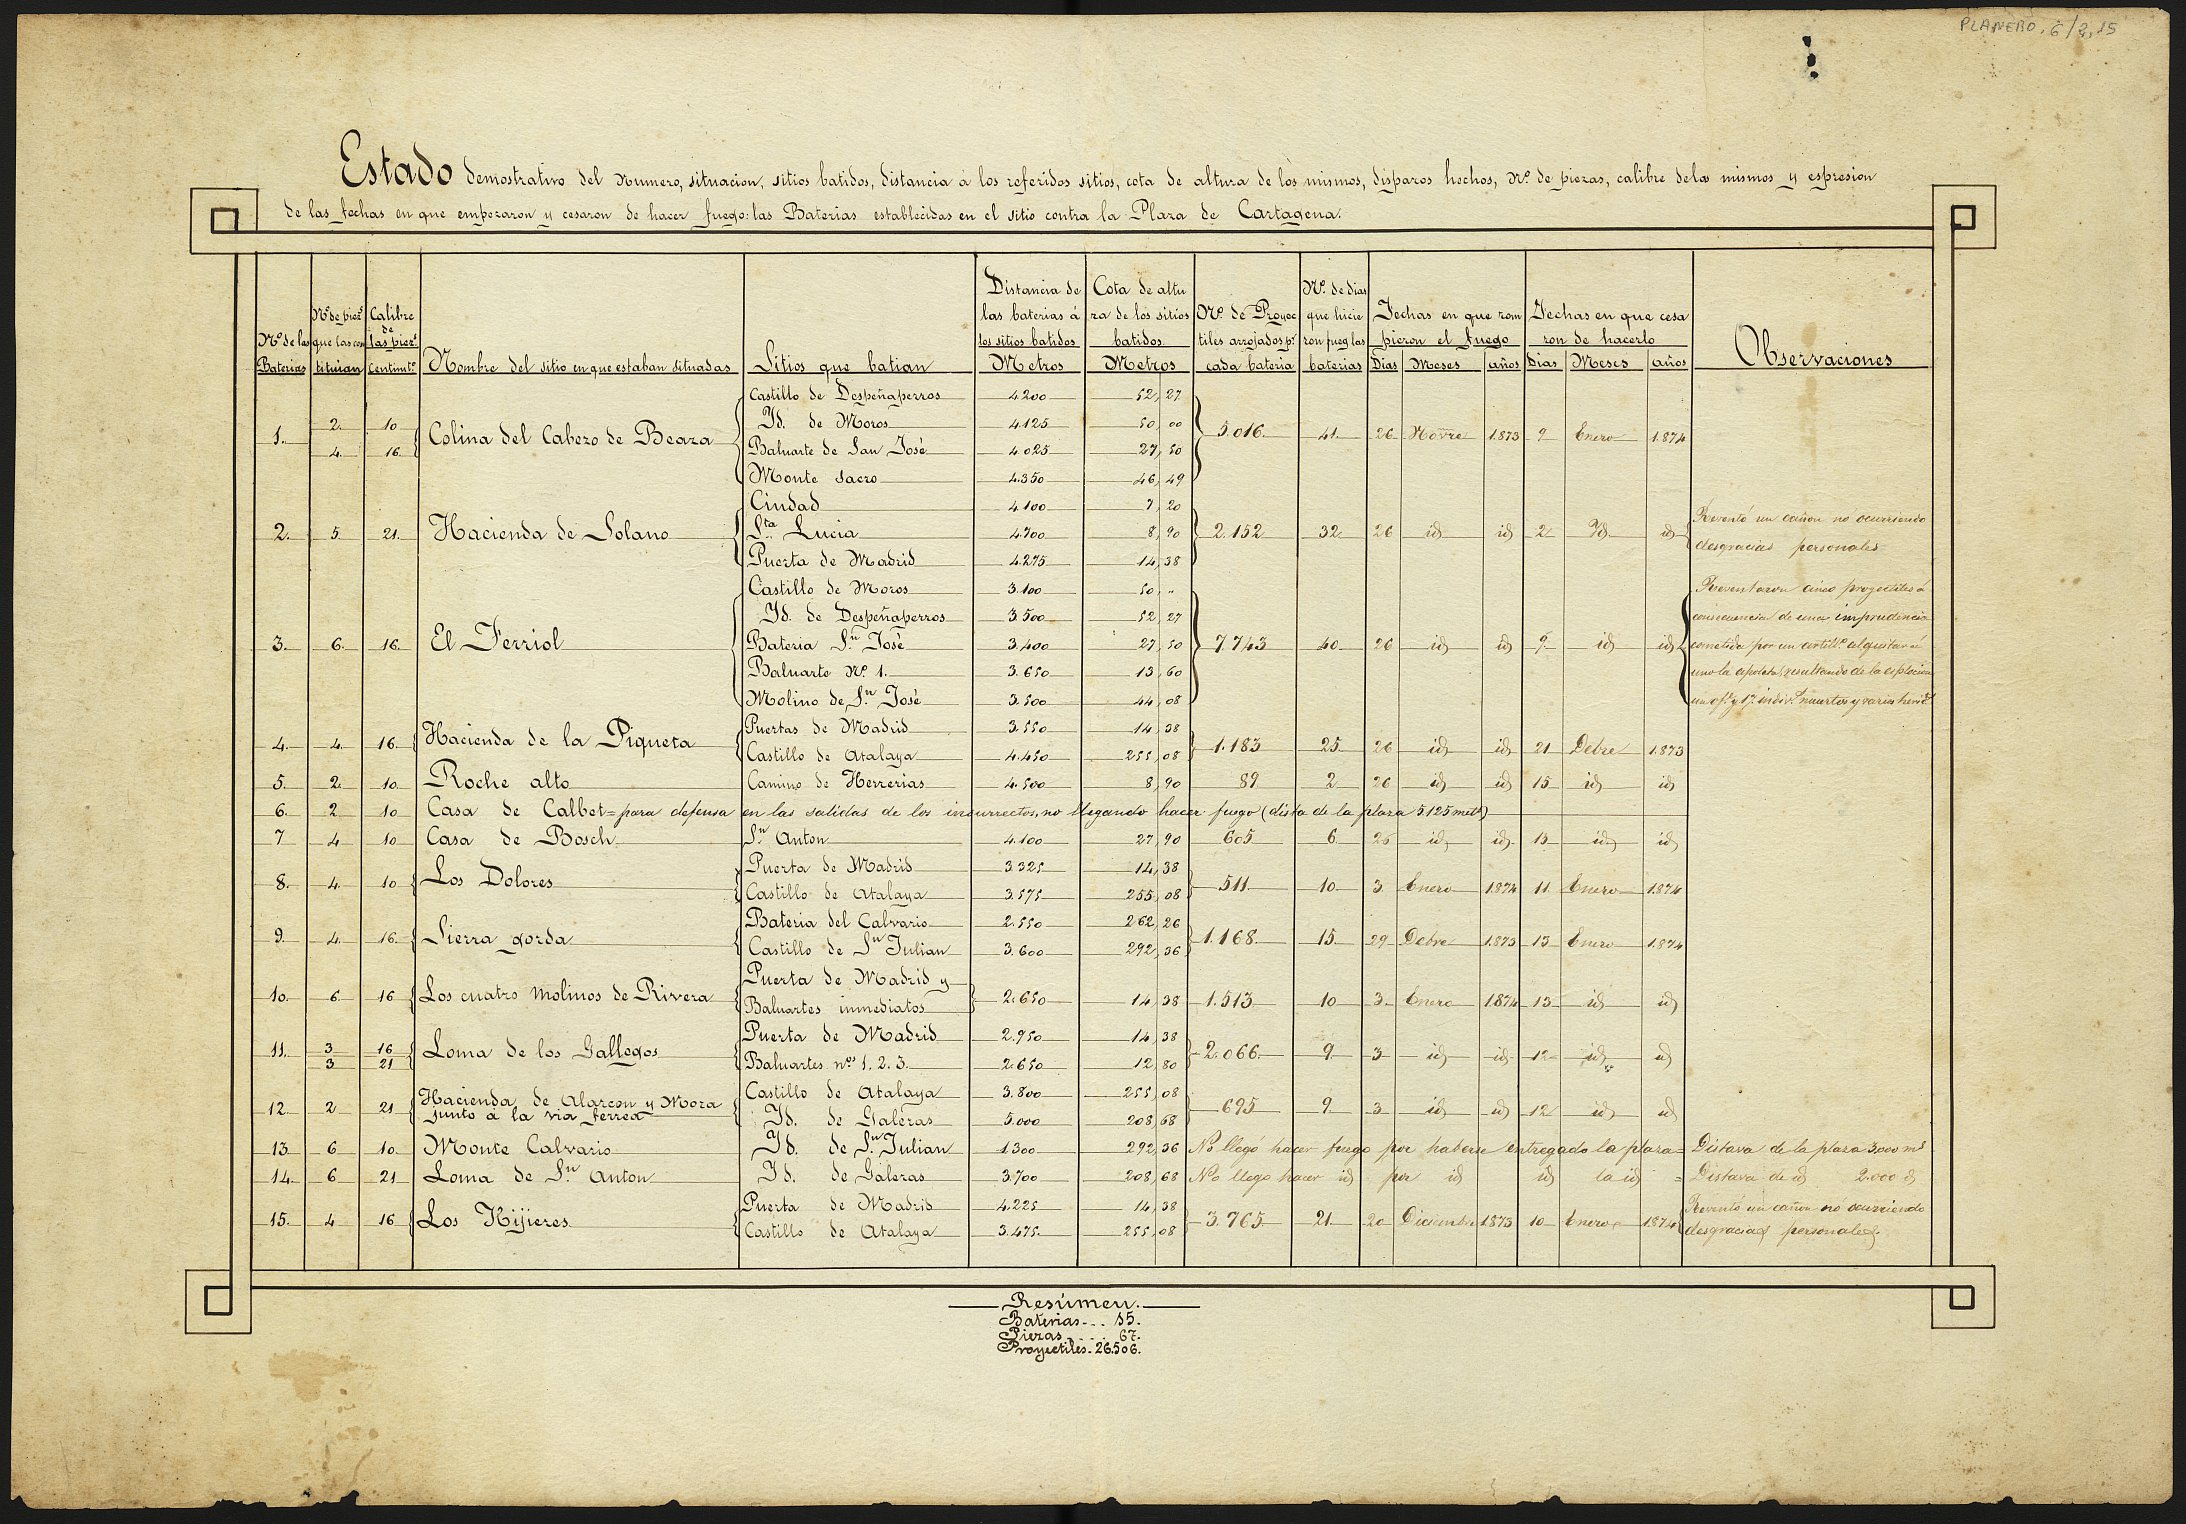 PLANERO, 6/2, 15
Estado demostrativo del Numero, situacion, sitios batidos, distancia á los referidos sitios, cota de altura de los mismos, disparos hechos, Nº de piezas, calibre de las mismos y espresion
de las fechas en que empezaron y cesaron de hacer fuego: las Baterias establecidas en el sitio contra la Plaza de Cartagena.
Nº de las Baterias
Nº de piezs que las constituian
Calibre de las piezs Centimts
Nombre del sitio en que estaban situadas
Sitios que batian
Distancia de las baterias á los sitios batidos Metros
Cota de altura de los sitios batidos Metros
Nº de Proyectiles arrojados pr cada bateria
Nº de dias que hicieron fueg las baterias
Fechas en que rompieron el fuego Dias Meses años
Fechas en que cesaron de hacerlo Dias Meses años
Observaciones
1. 2. 10 Colina del Cabezo de Beaza Castillo de Despeñaperros 4200 52,27 5.016. 41. 26 Novre 1.873 9 Enero 1.874
4. 16. Yd. de Moros 4.125 50,00
Baluarte de San José 4.025 27,50
Monte sacro 4.350 46,49
2. 5. 21. Hacienda de Solano Ciudad 4.100 7,20 2.152 32. 26 id id 2 Yd. id Reventó un cañon no ocurriendo
Sta Lucia 4.700 8,90 desgracias personales
Puerta de Madrid 4.275 14,38
3. 6. 16. El Ferriol Castillo de Moros 3.100 50,, 7.743 40 26 id id 9. id id Reventaron cinco proyectiles á
Yd. de Despeñaperros 3.500 52 27 consecuencia de una imprudencia
Bateria Sn José 3.400 27,50 cometida por un artillo al quitar á
Baluarte Nº 1. 3.650 13,60 uno la espoleta, resultando de la esplocion
Molino de Sn José 3.500 44,08 un ofl y 17 indivs muertos y varios herids
4. 4. 16. Hacienda de la Piqueta Puertas de Madrid 3.550 14,38 1.183 25 26 id id 21 Debre 1.873
Castillo de Atalaya 4.450 255,08
5. 2. 10 Roche alto Camino de Herrerias 4.500 8,90 89 2 26 id id 15 id id
6. 2 10 Casa de Calbet = para defensa en las salidas de los insurrectos, no llegando hacer fuego (dista de la plaza 5.125 mets)
7 4 10 Casa de Bosch Sn Anton 4.100 27,90 605 6 26 id id 13 id id
8. 4. 10 Los Dolores Puerta de Madrid 3.325 14,38 511. 10 3 Enero 1.874 11 Enero 1.874
Castillo de Atalaya 3.575 255,08
9. 4. 16. Sierra gorda Bateria del Calvario 2.550 262,26 1.168 15. 29 Debre 1.873 13 Enero 1.874
Castillo de Sn Julian 3.600 292,36
10. 6. 16 Los cuatro Molinos de Rivera Puerta de Madrid y
Baluartes inmediatos 2.650 14,38 1.513 10 3. Enero 1.874 13 id id
11. 3 16 Loma de los Gallegos Puerta de Madrid 2.950 14,38 2.066. 9. 3 id id 12 id id
3 21 Baluartes nos 1. 2. 3. 2.650 12,80
12. 2 21 Hacienda de Alarcon y Mora Castillo de Atalaya 3.800 255,08 695 9 3 id id 12 id id
junto á la via ferrea Yd. de Galeras 5.000 208,68
13. 6 10. Monte Calvario Yd. de Sn Julian 1.300 292,36 No llegó hacer fuego por haberse entregado la plaza = Distava de la plaza 3,000 ms
14. 6 21 Loma de Sn Anton Yd. de Galeras 3.700 208,68 No llego hacer id por id id la id = Distava de id 2.000 d
15. 4 16 Los Hijieres Puerta de Madrid 4.225 14,38 3.765 21. 20 Diciembre 1873 10 Enero 1874 Reventó un cañon nó ocurriendo
Castillo de Atalaya 3.475. 255,08 desgracias personales.
Resúmen.
Baterias... 15.
Piezas.... 67.
Proyectiles. 26.506.